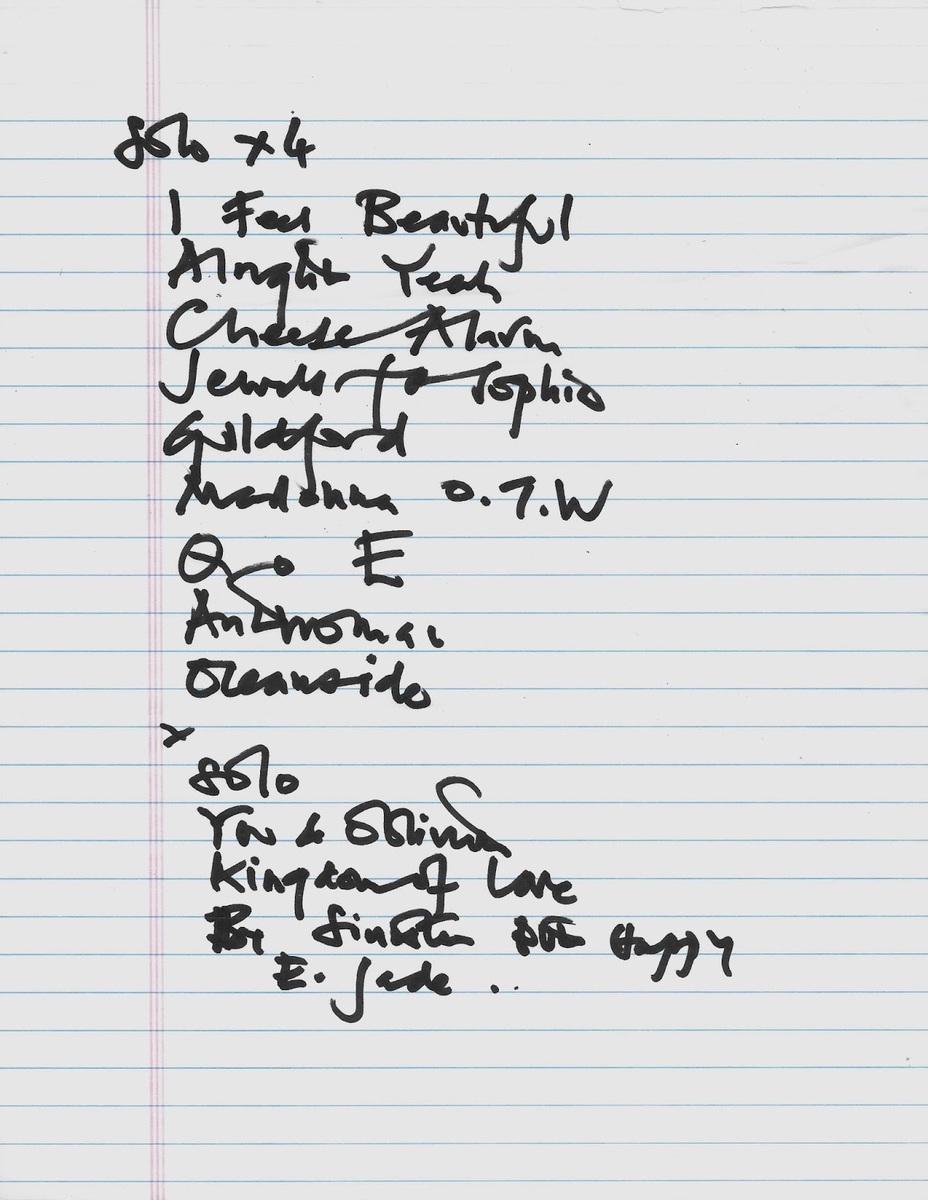 Solo x 4
I Feel Beautiful
Alright Yeah
Cheese Alarm
Jewels for Sophia
Guildford
Madonna O.T.W
Q o E
Antwoman
Oceanside
x
Solo
You & Oblivion
Kingdom of Love
Sinister Happy
E. Jade ..